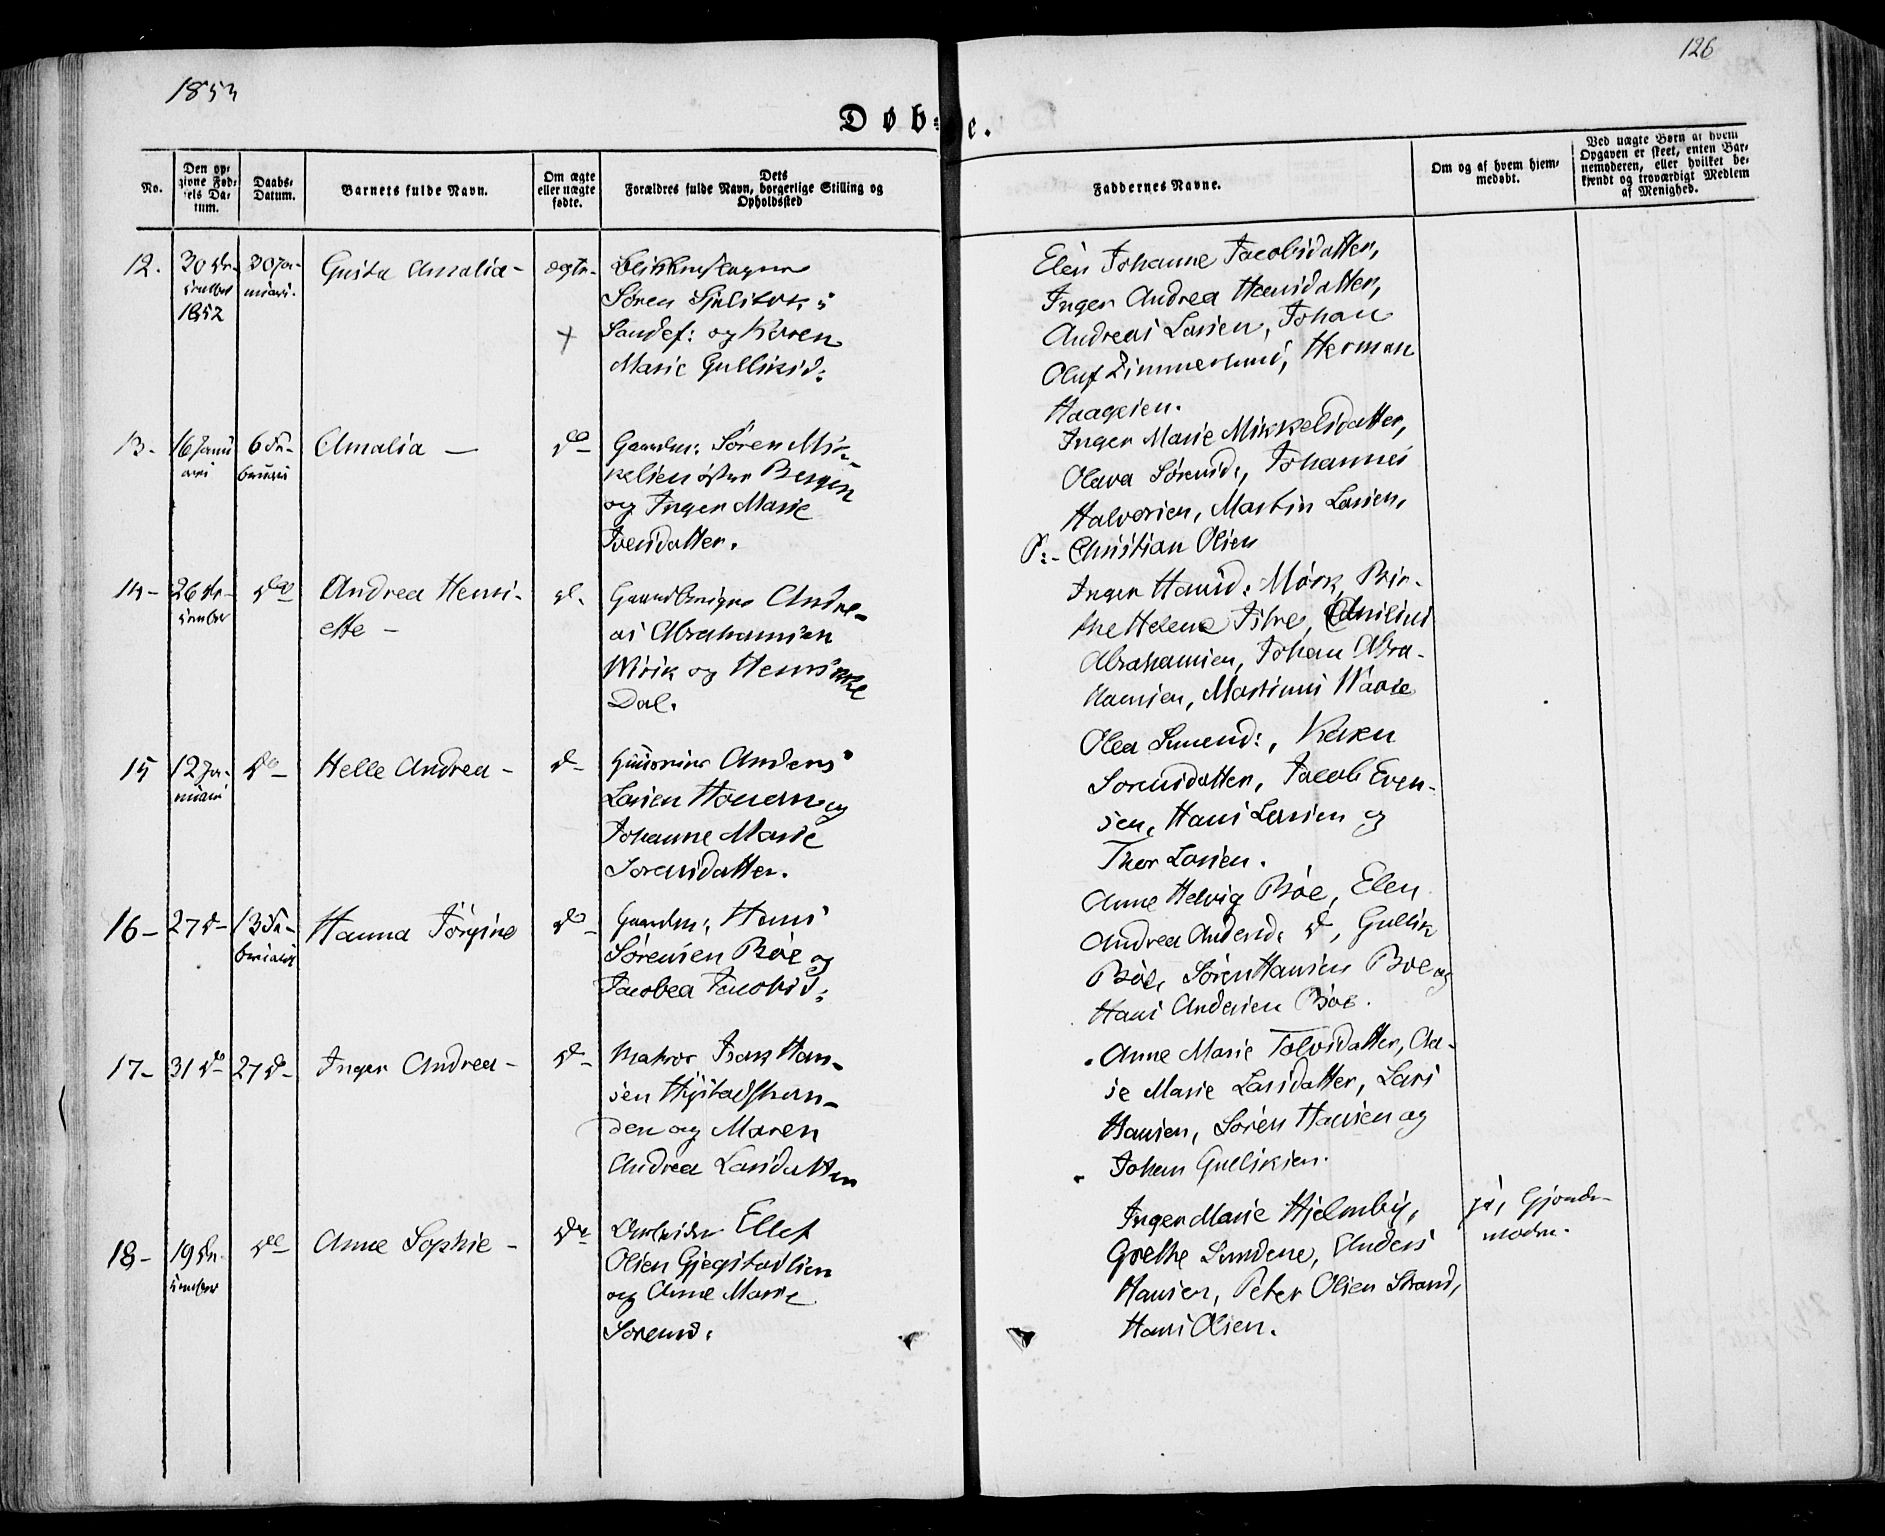 1853
126
Døb=
e.
No.
Den op=
givne Fød=
sels Da=
tum.
Daabs=
Datum.
Barnets fulde Navn.
Om ægte
eller uægte
fødte.
Dets
Forældres fulde Navn, borgerlige Stilling og
Opholdssted
Faddernes Navne.
Om og af hvem hjem=
medøbt.
Ved uægte Børn at hvem
Opgaven er skeet, enten Bar=
nemoderen, eller hvilket be=
kjendt og troværdigt Medlem
af Menighed.
12.
30 De-
cember
1852
30 Ja-
nuari.
Gusta Amalia -
ægte -
+
Blikkenslager
Søren
Sandef: og Karen
Marie Gulliksd:
Elen Johanne Jacobsdatter,
Inger Andrea Hansdatter,
Andreas Larsen, Johan
Oluf Zimmerlund, Herman
Haagsien.
13 -
16 Janu
ari
6 Fe-
bruari
Amalia -
do -
Gaardm: Søren Mik-
kelsen østre Bergen
og Inger Marie
Iversdatter.
Inger Marie Mikkelsdatter,
Olava Sørensd:, Johannes
Halvorsen, Martin Larsen,
Christian Olsen
14 -
26 De-
cember
do
Andrea Henri-
ette -
Gaardbruger Andre-
as Abrahamsen
Mørk og Henrikke
Dal.
Inger Hansd: Mørk, Bir-
the Helene
Abrahamsen, Johan Abra-
hamsen, Martinus
15
12 Ja-
nuari
do -
Helle Andrea -
d -
Huusmand Anders
Larsen Houen og
Johanne Marie
Sorensdatter.
Olea Sørensd:, Karen
Sorensdatter, Jacob Even-
sen, Hans Larsen og
Thor Larsen.
16 -
27 d -
13 Fe-
bruari
Hanna Jørgine
do -
Gaardm: Hans
Sørensen Bøe og
Jacobea Jacobsd:
Anne Helvig Bøe, Elen
Andrea Andersd: d, Gullik
Bøe, Søren Hansen Bøe og
Hans Andersen Bøe.
17 -
31 d -
27 d -
Inger Andrea -
d -
Matros Isak Han-
sen Hystadstran-
den og Maren
Andrea Larsdatter
Anne Marie Tolvsdatter, Aa-
se Marie Larsdatter, Lars
Hansen, Søren Hansen og
Johan Gulliksen.
18 -
19 De-
cember
do
Anne Sophie -
do
Arbeider Ellef
Olsen Gjegstadlien
og Anne Marie
Sorensd:
Inger Marie Hjelmby,
Grethe Lundene, Anders
Hansen, Peter Olsen Strand,
Hans Olsen.
ja, Gjorde-
moder.